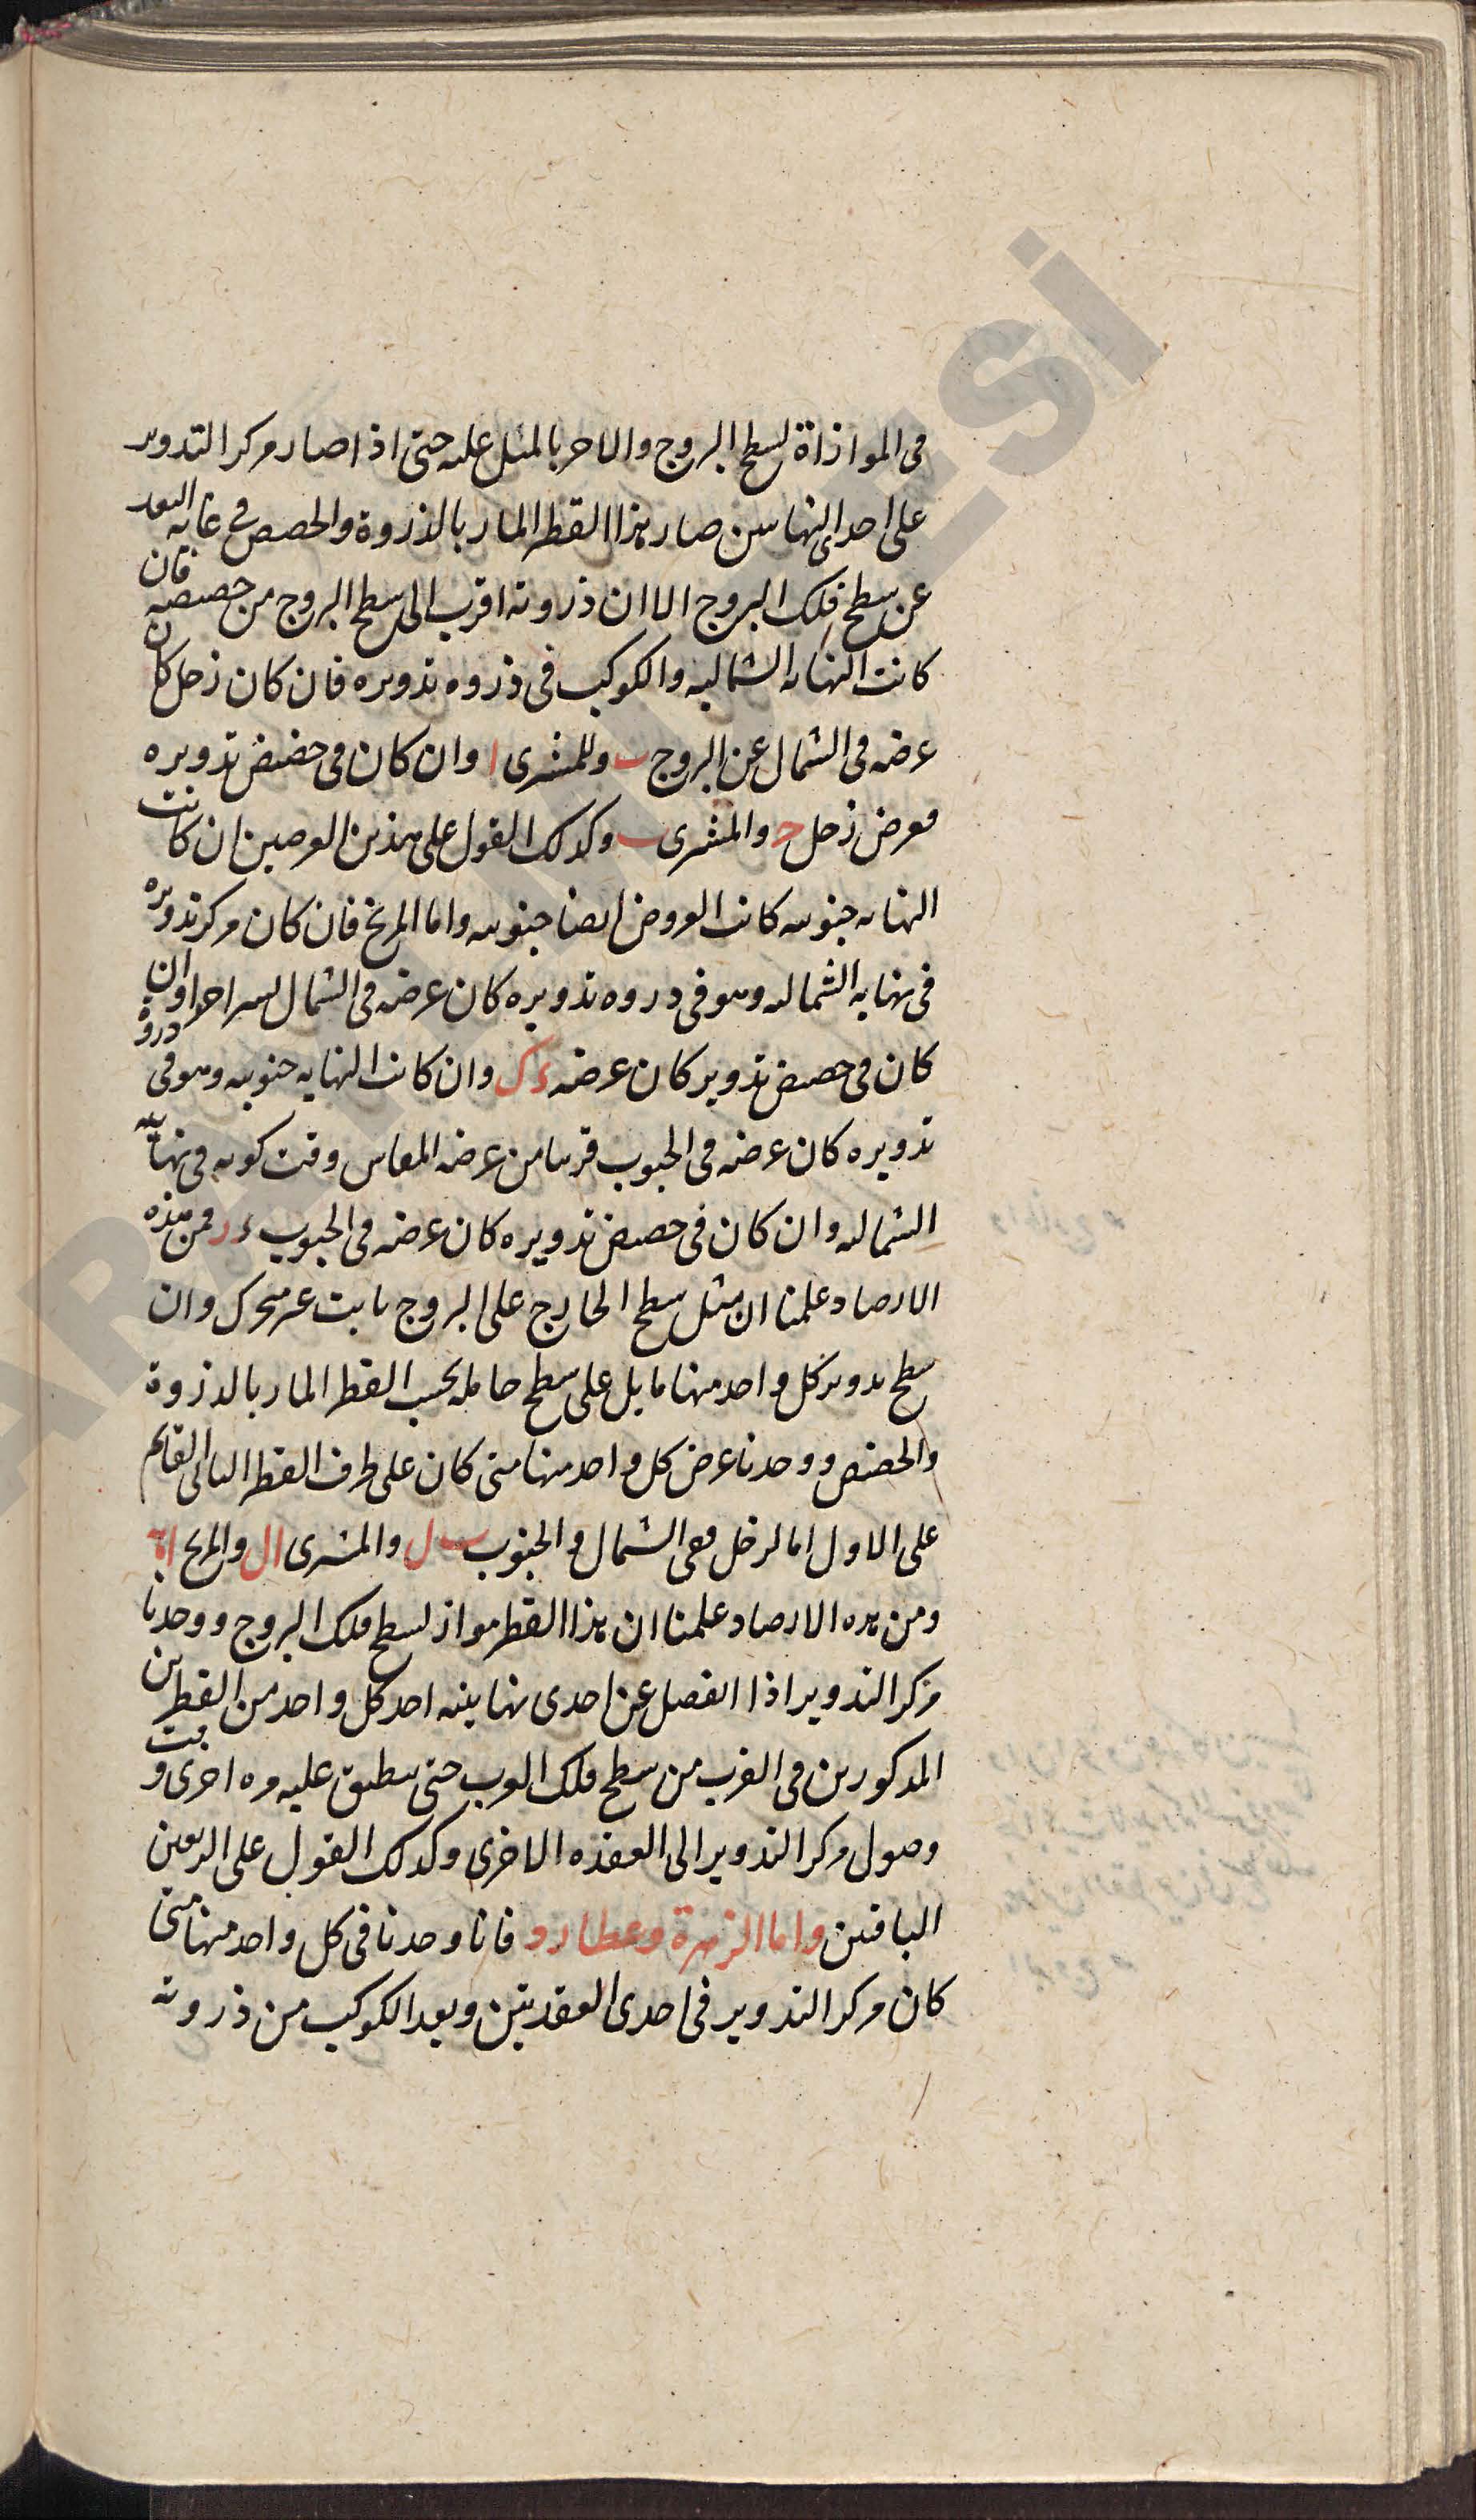 فى الموازاة لسطح البروج والاخر بالميل عليه حتى اذا صار مركز التدوير
على احدى النهايتين صار هذا القطر المار بالذروة والحضيض فى غاية البعد
عن سطح فلك البروج الا ان ذروته اقرب الى سطح البروج من حضيضه فان
كانت النهاية الشمالية والكوكب فى ذروه تدويره فان كان زحل كان
عرضه فى الشمال عن البروج ب وللمشترى ا وان كان فى حضيض تدويره
فعرض زحل ج والمشترى ب وكذلك القول على هذين العرضين ان كانت
النهايه جنوبيه كانت العروض ايضا جنوبيه واما المريخ فان كان مركز تدويره
فى نهايه الشماليه وهو فى ذروه تدويره كان عرضه فى الشمال يسيرا جدا وان
كان فى حضيض تدوير كان عرضه د ك وان كانت النهايه جنوبيه وهو فى ذروة
تدويره كان عرضه فى الجنوب قريبا من عرضه المقاس وقت كونه فى نهايته
الشماليه وان كان فى حضيض تدويره كان عرضه فى الجنوب ر فمن هذه
الارصاد علمنا ان ميل سطح الخارج على البروج ثابت غير متحرك وان
سطح تدوير كل واحد منها مايل على سطح حامله بحسب القطر المار بالذروة
والحضيض ووجدنا عرض كل واحد منها متى كان على طرف القطر الثانى القايم
على الاول اما لزحل ففى الشمال والجنوب ب ل والمشترى ا ل والمريخ
ومن هذه الارصاد علمنا ان هذا القطر مواز لسطح فلك البروج ووجدنا
مركز التدوير اذا انفصل عن احدى نهايتيه اخذ كل واحد من القطرين
المذكورين فى القرب من سطح فلك البروج حتى ينطبق عليه مره اخرى وقت
وصول مركز التدوير الى العقده الاخرى وكذلك القول على الربعين
الباقيين واما الزهرة وعطارد فانا وجدنا فى كل واحد منها متى
كان مركز التدوير فى احدى العقدتين وبعد الكوكب من ذروته